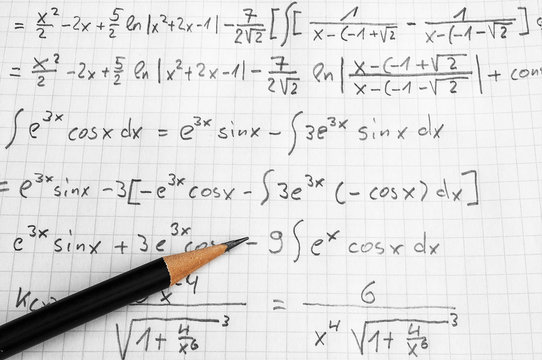 = x²/2 -2x + 5/2 ln|x²+2x-1| - 7/2√2 [∫[ 1/x-(-1+√2 - 1/x-(-1-√2 ]
= x²/2 -2x + 5/2 ln|x²+2x-1| - 7/2√2 ln| x-(-1+√2/x-(-1-√2 | + con
∫e³ˣ cosx dx = e³ˣ sinx - ∫3e³ˣ sinx dx
= e³ˣ sinx -3[-e³ˣ cosx - ∫3e³ˣ (-cosx) dx]
e³ˣ sinx + 3e³ˣ cosx - 9∫eˣ cosx dx
x⁻⁴/√1+4/x⁶ ³ = 6/x⁴√1+4/x⁶ ³